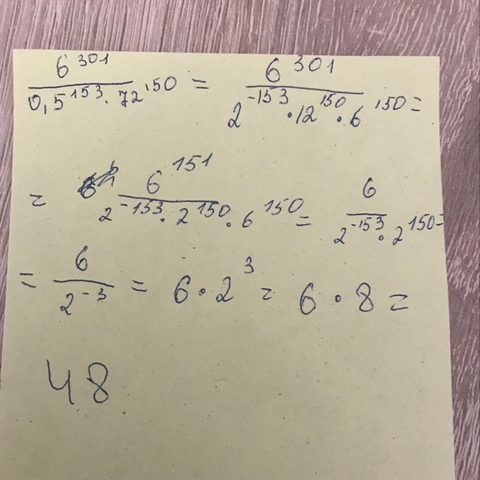 6^301 / (0,5^153 · 72^150) = 6^301 / (2^-153 · 12^150 · 6^150) =
= 6^151 / (2^-153 · 2^150 · 6^150) = 6 / (2^-153 · 2^150) =
= 6 / 2^-3 = 6 · 2^3 = 6 · 8 =
48